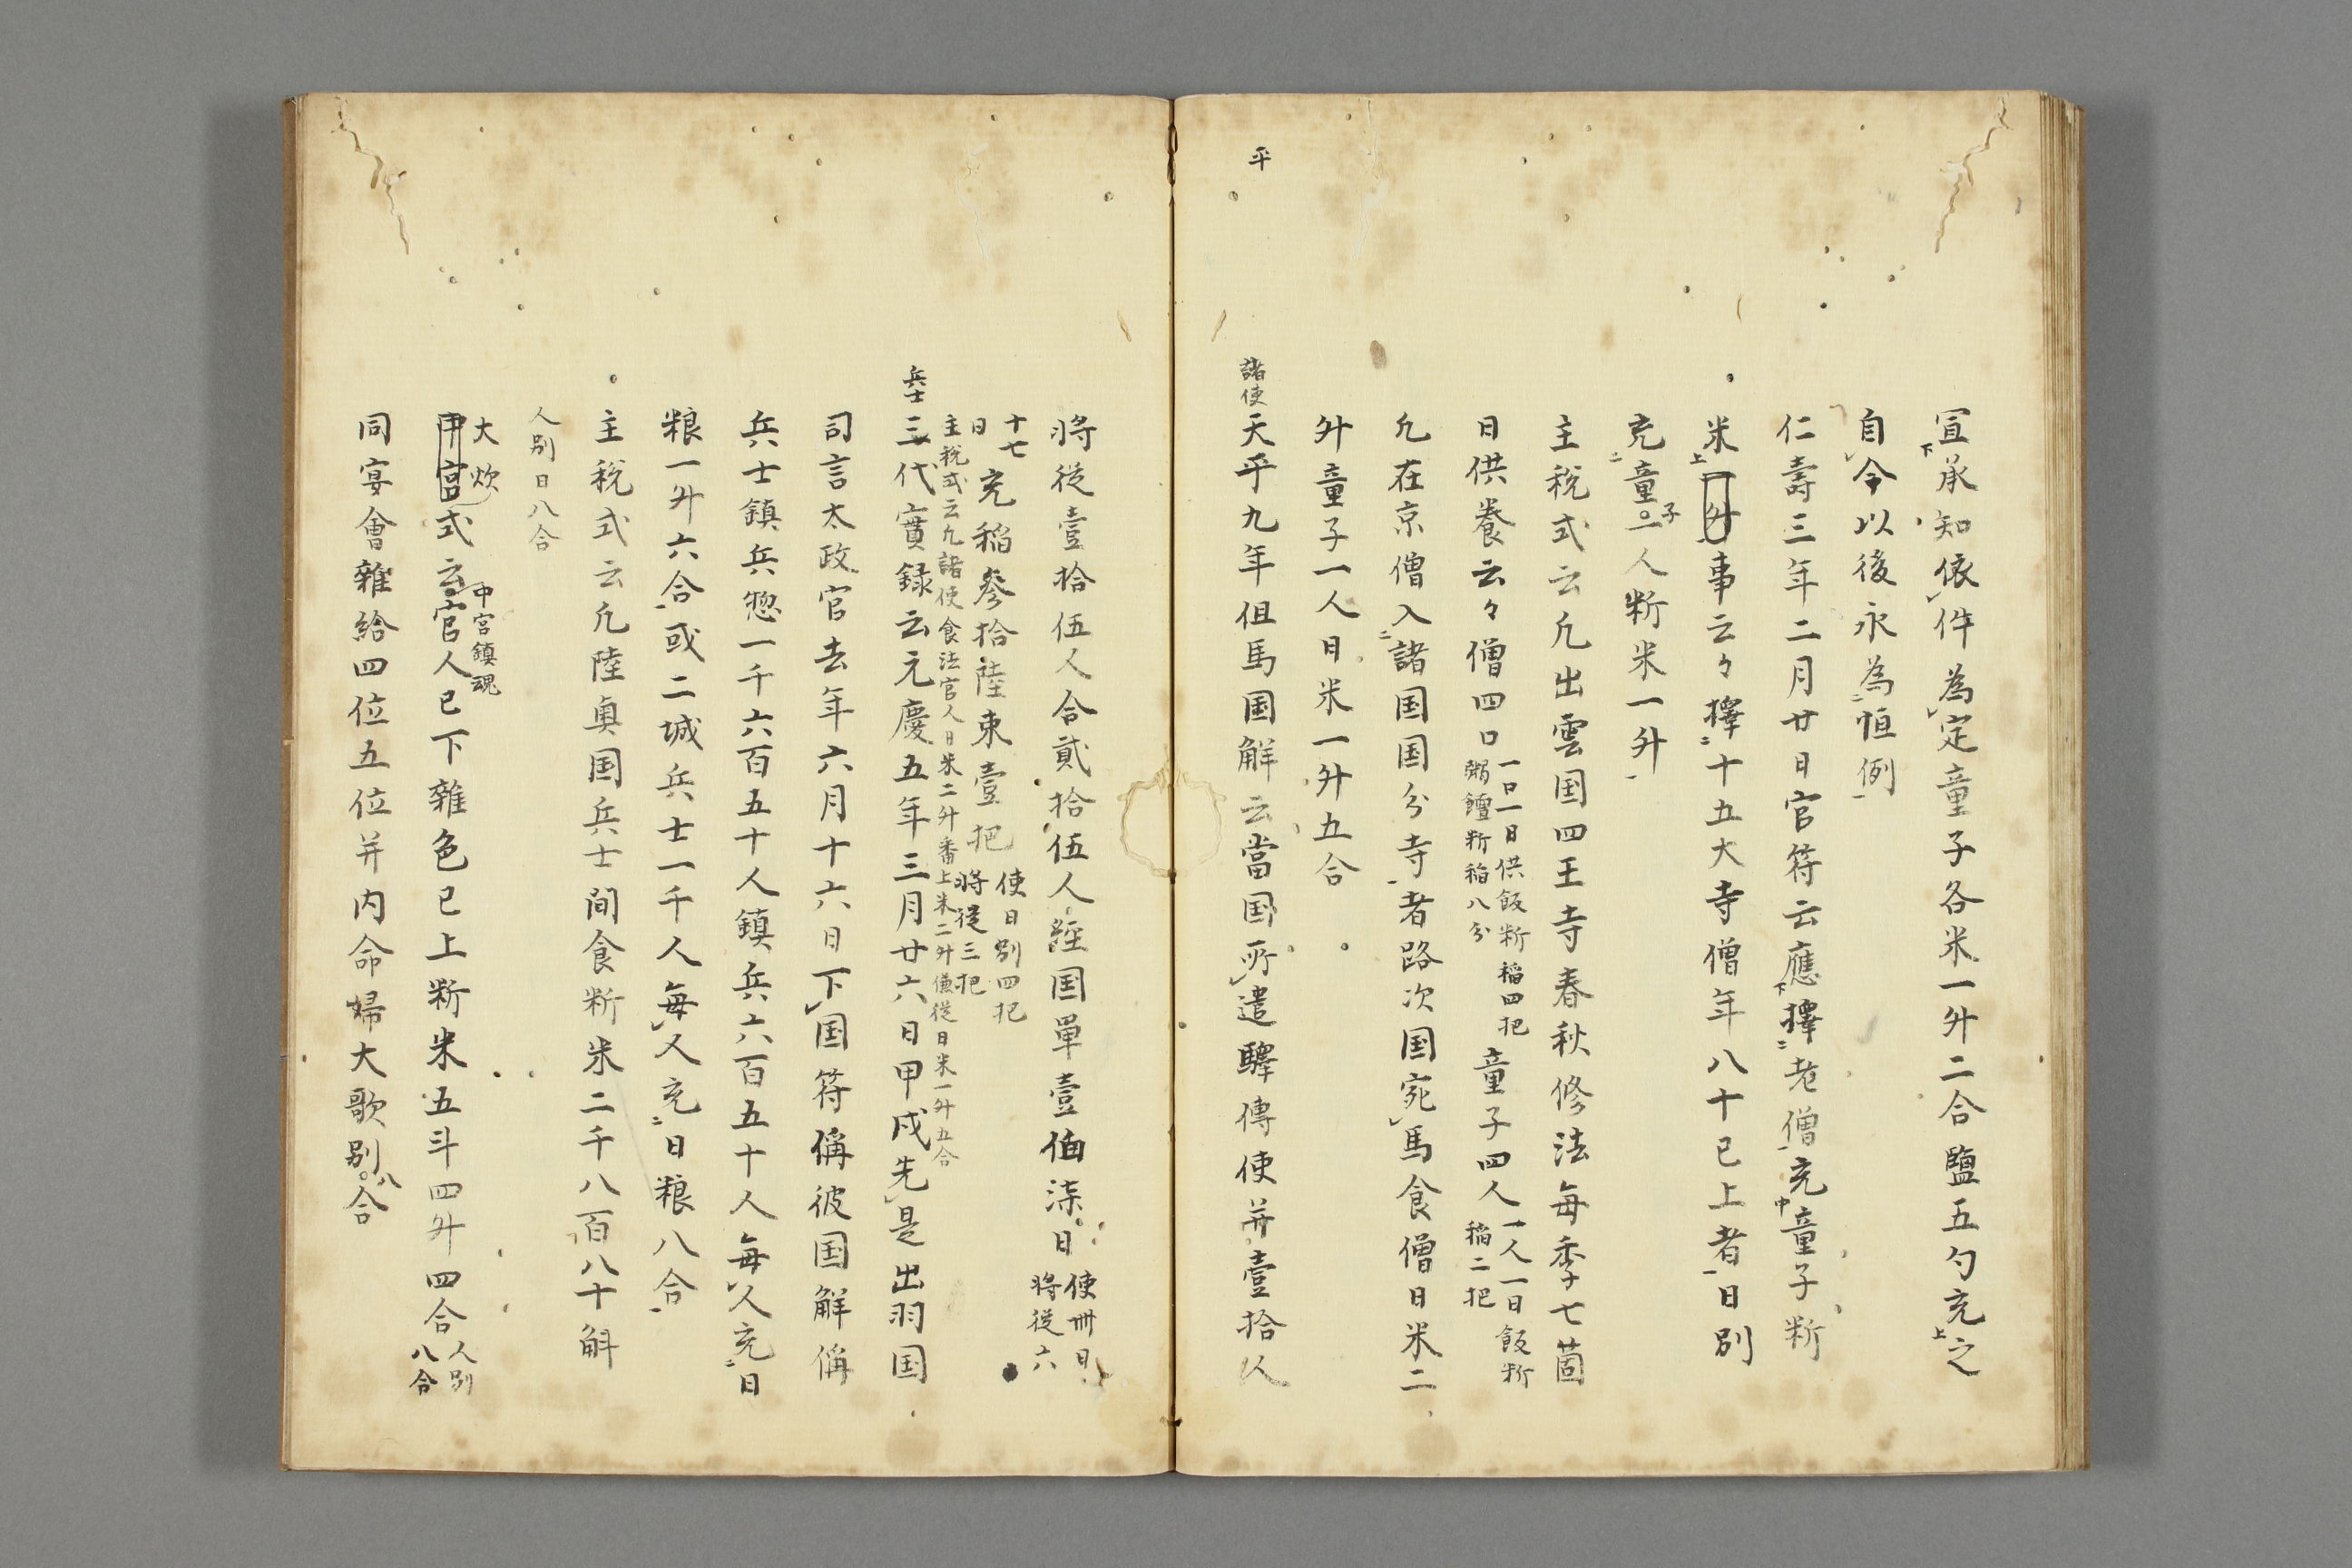 宣承知依件為定童子各米一升二合鹽五勺充之
自今以後永為恒例
仁壽三年二月廿日官符云應擇老僧充童子断
米升事云々擇十五大寺僧年八十已上者日別
充童子二人断米一升
主税式云凡出雲国四王寺春秋修法每季七箇
日供養云々僧四口
一口一日供飯断稲四把
粥饘断稲八分
童子四人
一人一日飯断
稲二把
凡在京僧入諸国国分寺者路次国宛馬食僧日米二
升童子一人日米一升五合
平
諸使
天平九年但馬国解云當国所遣驛傳使并壹拾人
將從壹拾伍人合貳拾伍人經国單壹伯柒日
使卌日
將從六
十七
日
充稲參拾陸束壹把
使日別四把
將從三把
主税式云凡諸使食法官人日米二升番上米二升傔從日米一升五合
兵士
三代實録云元慶五年三月廿六日甲戌先是出羽国
司言太政官去年六月十六日下国符偁彼国解偁
兵士鎮兵惣一千六百五十人鎮兵六百五十人每人充日
粮一升六合或二城兵士一千人每人充日粮八合
主税式云凡陸奥国兵士間食断米二千八百八十斛
人別日八合
大炊
中宮式云官人已下雜色已上断米五斗四升四合
中宮鎮魂
人別
八合
同宴會雜給四位五位并内命婦大歌別八合